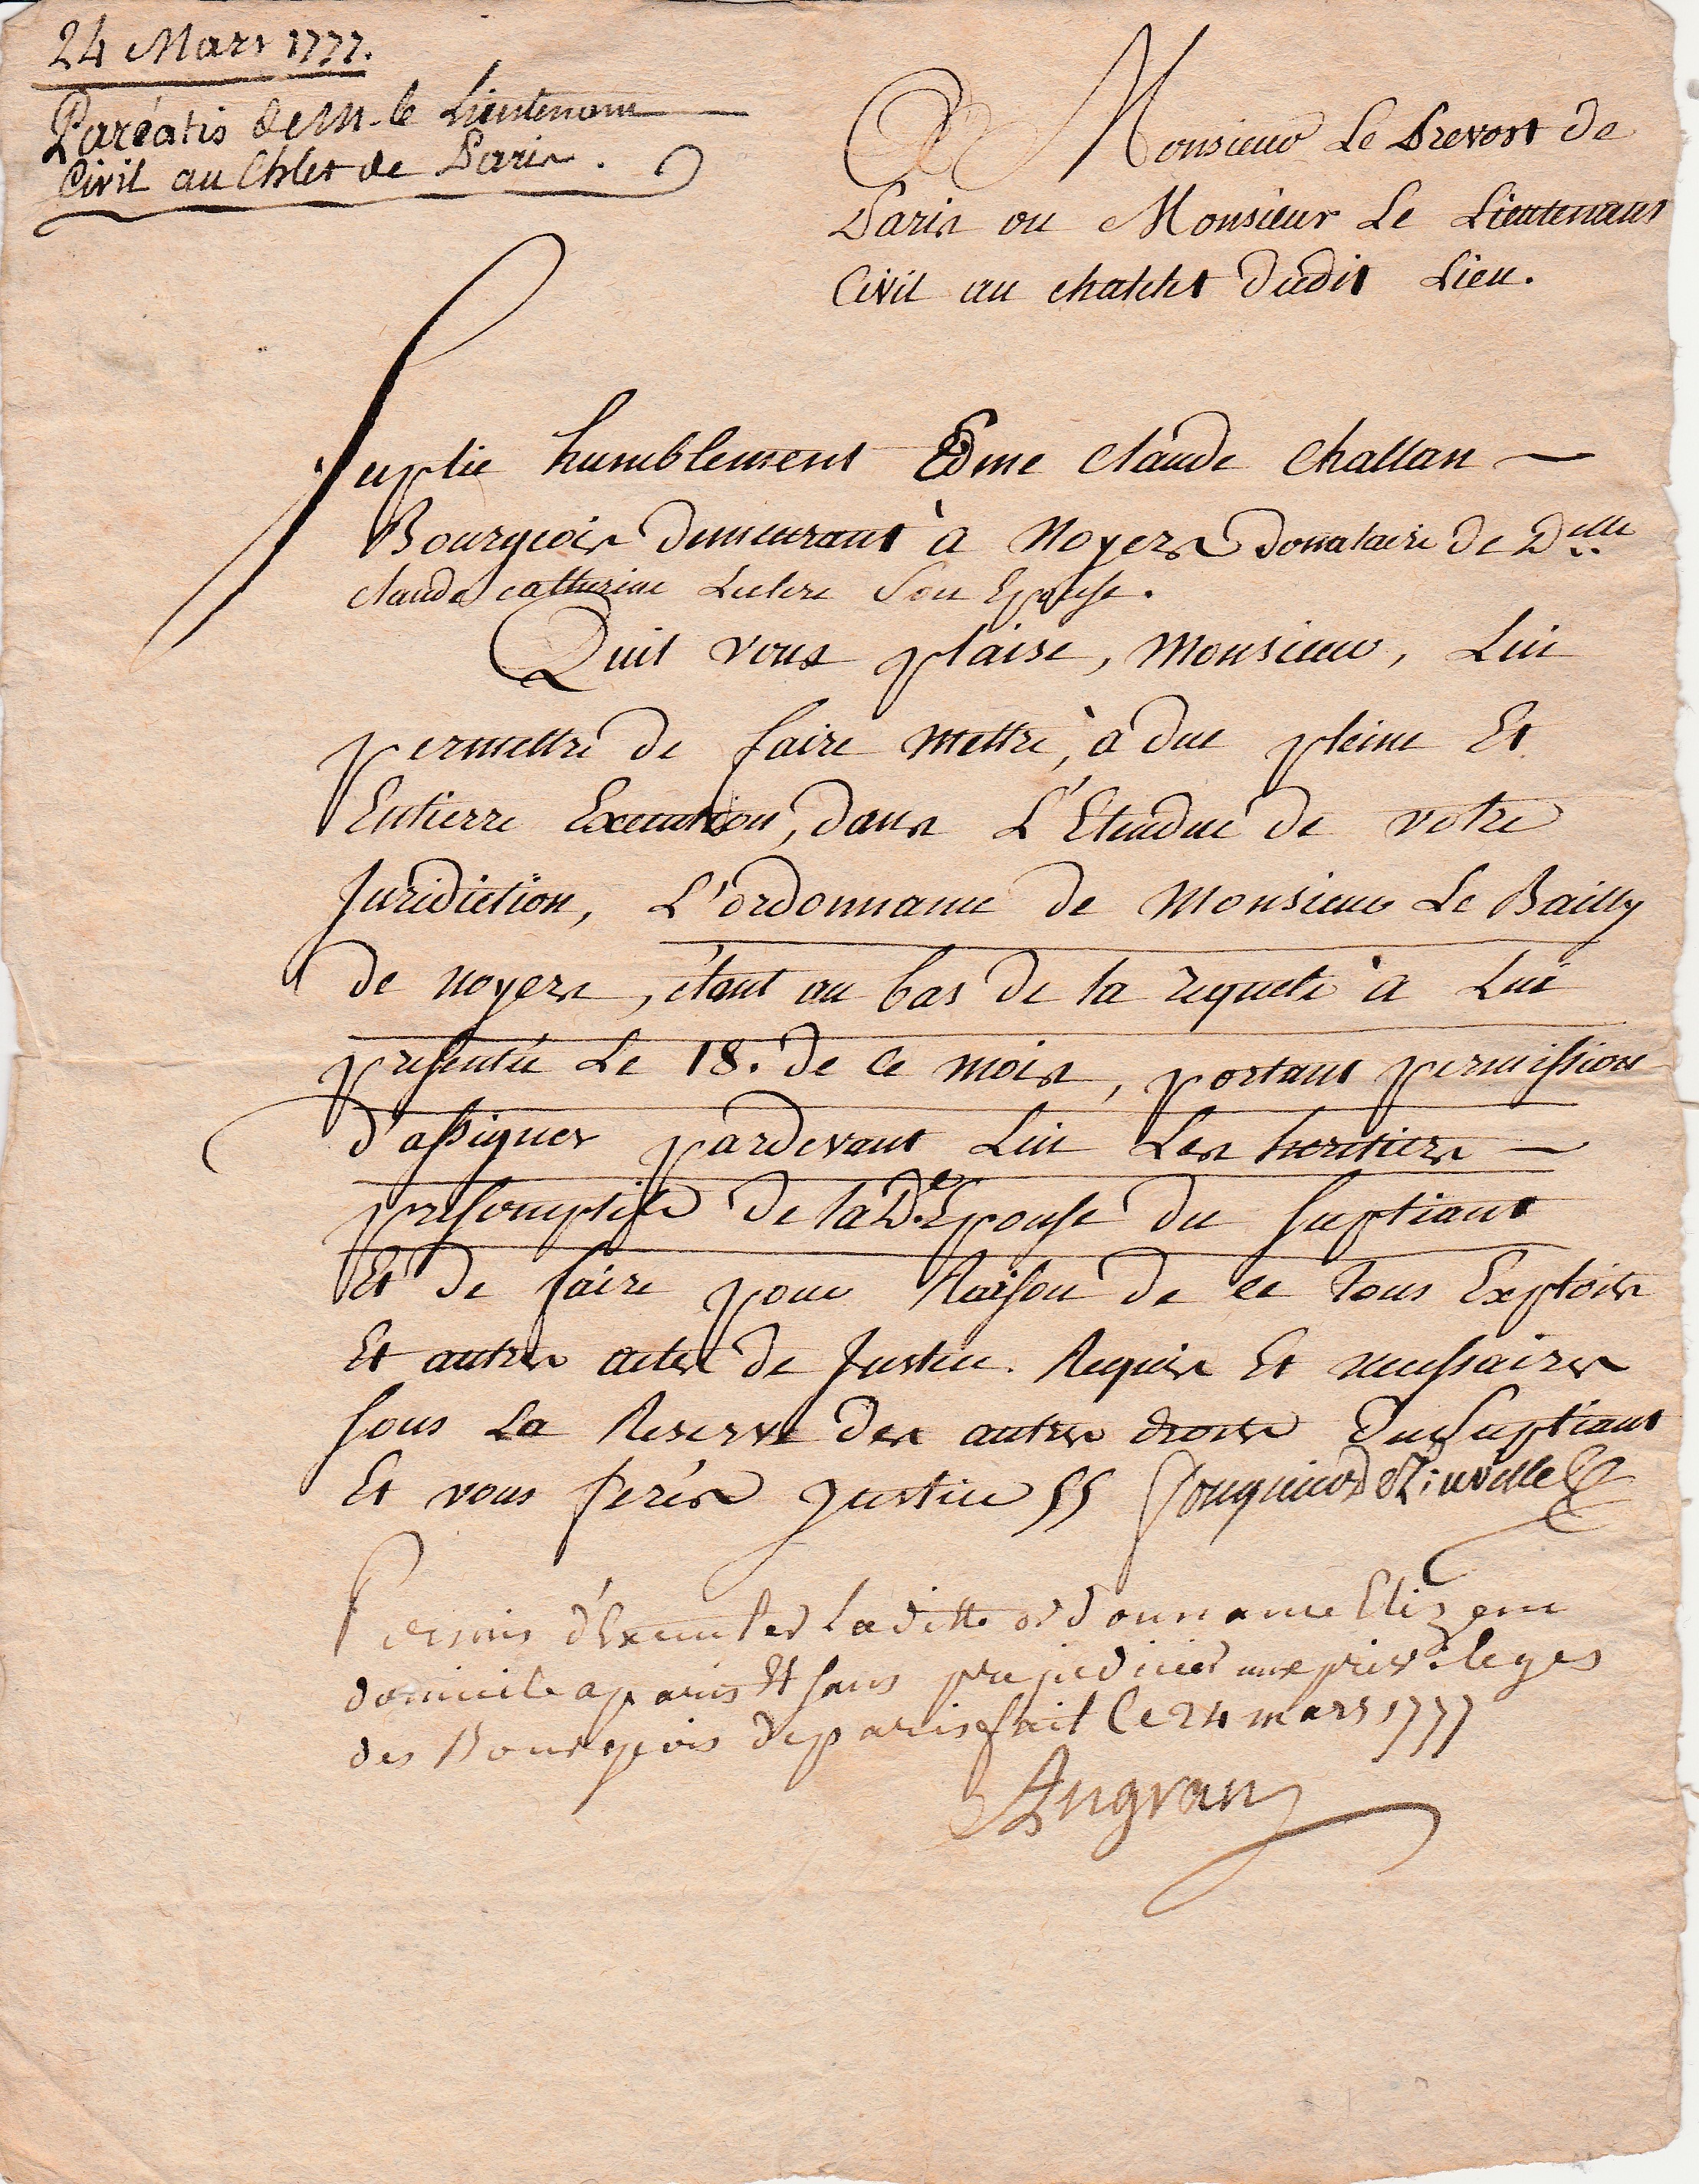 24 Mars 1777.
Paréatis de M. le Lieutenant
Civil au Chlet de Paris.
A Monsieur Le Prevost de
Paris ou Monsieur Le Lieutenant
Civil au chatelet dudit Lieu.
Suplie humblement Edme Claude Challan
Bourgeois demeurant à Noyers donataire de Delle
claude catherine Son Epouse.
Quil vous plaise, Monsieur, Lui
permettre de faire mettre, à due pleine Et
Entierre Execution, dans L'Etendue de votre
Juridiction, L'ordonnance de Monsieur Le Bailly
de noyers, étant au bas de la requete à Lui
presentée Le 18. de ce mois, portant permission
d'assigner pardevant Lui Les heritiers
presomptifs de la De. Epouse du Supliant
Et de faire pour Raison de ce Tous Exploits
Et autres actes de Justice. Requis Et necessaires
sous La Reserve des autres droits du Supliant
Et vous ferés Justice Fouquier de Tinville
Permis d'Executer Laditte ordonnance Elizant
domicile a paris Et sans prejudicier aux privileges
des Bourgeois de paris fait Ce 24 mars 1777
Angran